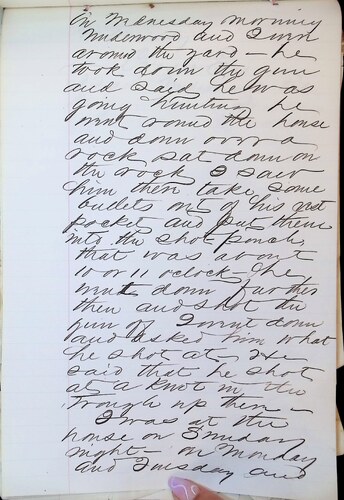 On Wednesday morning
Underwood and I was
around the yard - he
took down the gun
and said he was
going hunting he
went round the house
and down over a
rock sat down on
the rock I saw
him then take some
bullets out of his vest
pocket and put them
into the shot pouch,
that was about
10 or 11 oclock - he
went down further
then and shot the
gun off I went down
and asked him what
he shot at He
said that he shot
at a knot in the
Trough up there -
I was at the
house on Sunday
night - on Monday
and Tuesday and